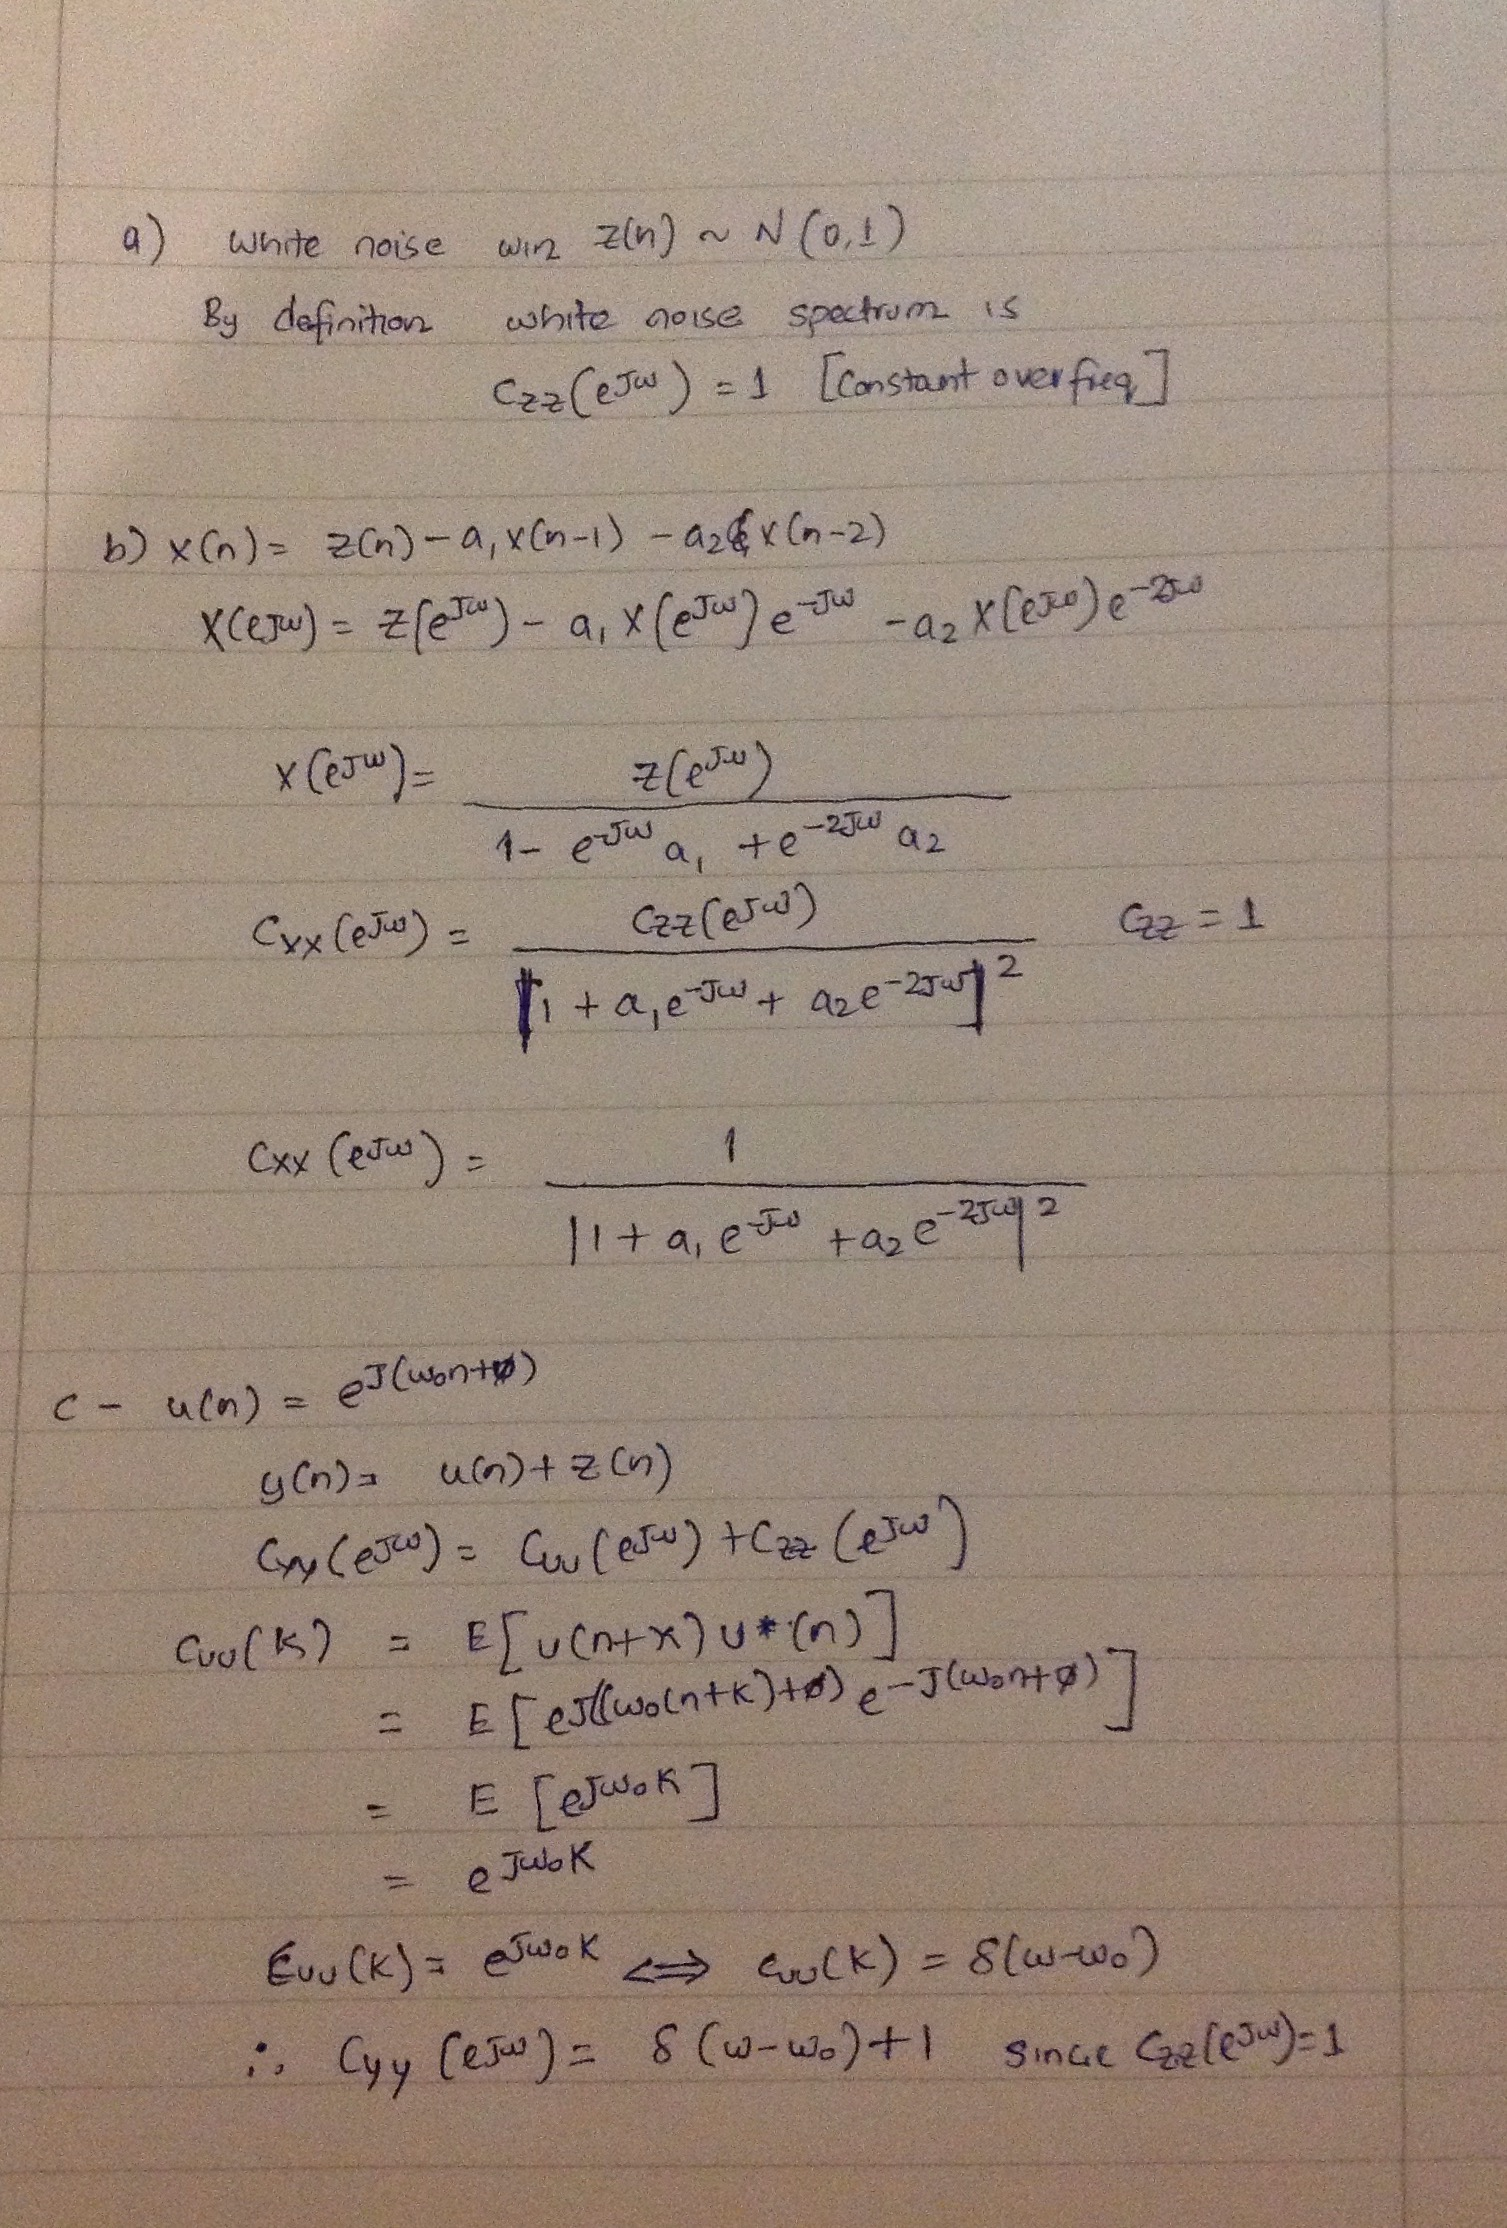 a) white noise win z(n) ~ N(0,1)
By definition white noise spectrum is
Czz(e^Jω) = 1 [Constant over freq]
b) x(n) = z(n) - a₁x(n-1) - a₂x(n-2)
X(e^Jω) = Z(e^Jω) - a₁X(e^Jω)e^-Jω - a₂X(e^Jω)e^-2Jω
X(e^Jω) = Z(e^Jω) / 1 - e^-Jω a₁ + e^-2Jω a₂
Cxx(e^Jω) = Czz(e^Jω) / |1 + a₁e^-Jω + a₂e^-2Jω|² Czz = 1
Cxx(e^Jω) = 1 / |1 + a₁e^-Jω + a₂e^-2Jω|²
c - u(n) = e^J(ω₀n+φ)
y(n) = u(n) + z(n)
Cyy(e^Jω) = Cuu(e^Jω) + Czz(e^Jω)
Cuu(k) = E[u(n+k)u*(n)]
= E[e^J((ω₀(n+k)+φ) e^-J(ω₀n+φ)]
= E[e^Jω₀k]
= e^Jω₀k
Cuu(k) = e^Jω₀k ⇔ Cuu(k) = δ(ω-ω₀)
∴ Cyy(e^Jω) = δ(ω-ω₀)+1 since Czz(e^Jω)=1